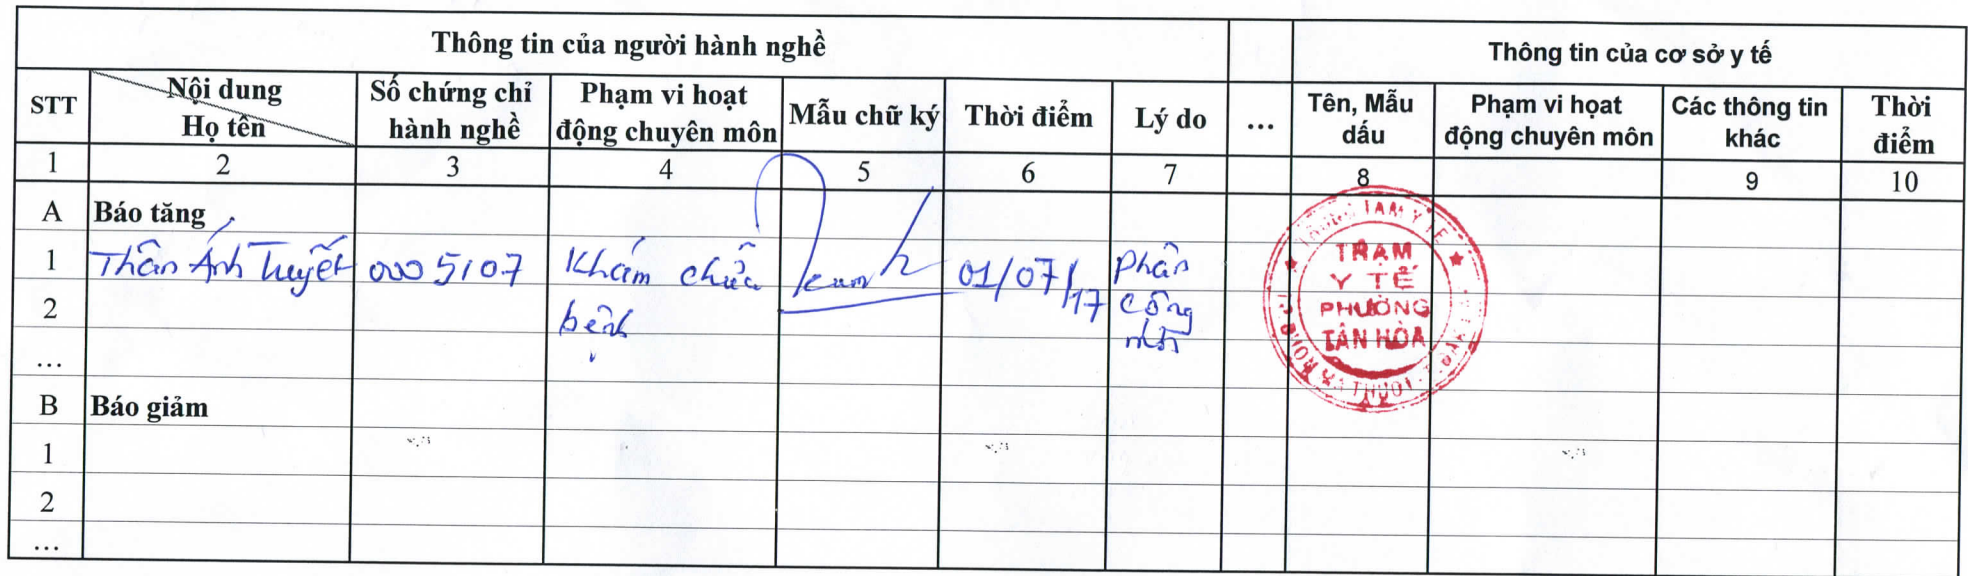 Thông tin của người hành nghề Thông tin của cơ sở y tế
STT Nội dung Họ tên Số chứng chỉ hành nghề Phạm vi hoạt động chuyên môn Mẫu chữ ký Thời điểm Lý do ... Tên, Mẫu dấu Phạm vi hoạt động chuyên môn Các thông tin khác Thời điểm
1 2 3 4 5 6 7 8 9 10
A Báo tăng
1 Thân Ánh Tuyết 0005107 Khám chữa bệnh 01/07/17 Phân công
2
...
B Báo giảm
1
2
...
TRẠM
Y TẾ
PHƯỜNG
TÂN HÒA